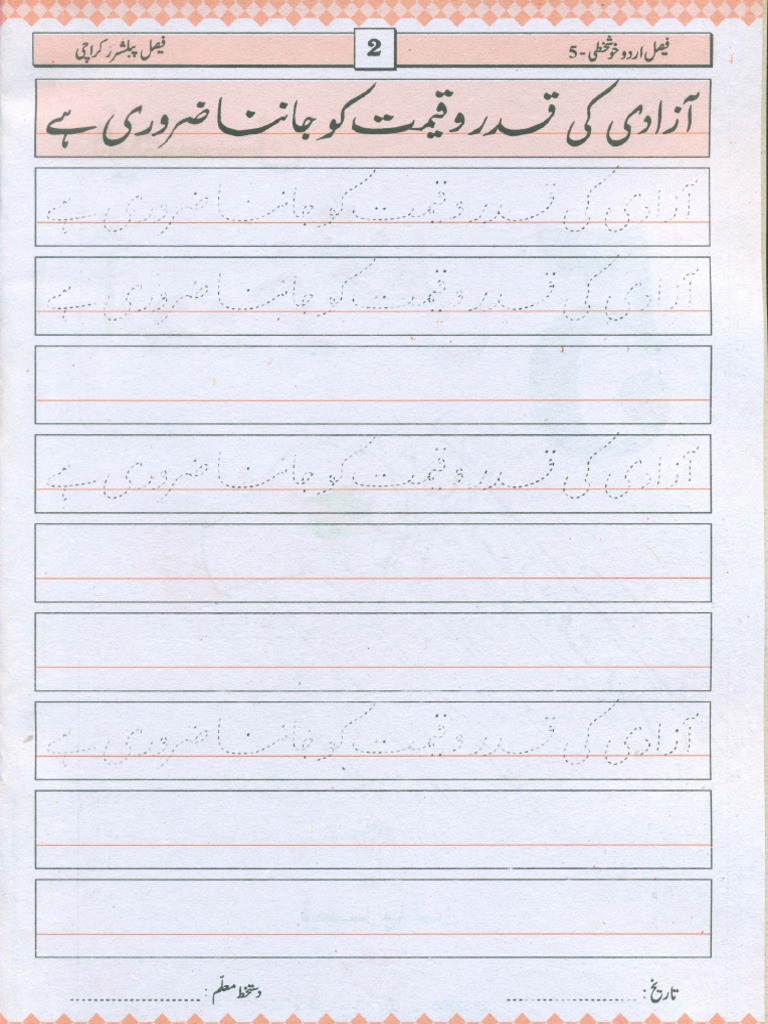 فیصل اردو خوشخطی - 5
2
فیصل پبلشرز کراچی
آزادی کی قدر و قیمت کو جاننا ضروری ہے
آزادی کی قدر و قیمت کو جاننا ضروری ہے
آزادی کی قدر و قیمت کو جاننا ضروری ہے
آزادی کی قدر و قیمت کو جاننا ضروری ہے
آزادی کی قدر و قیمت کو جاننا ضروری ہے
تاریخ: ............ دستخط معلّم: ............